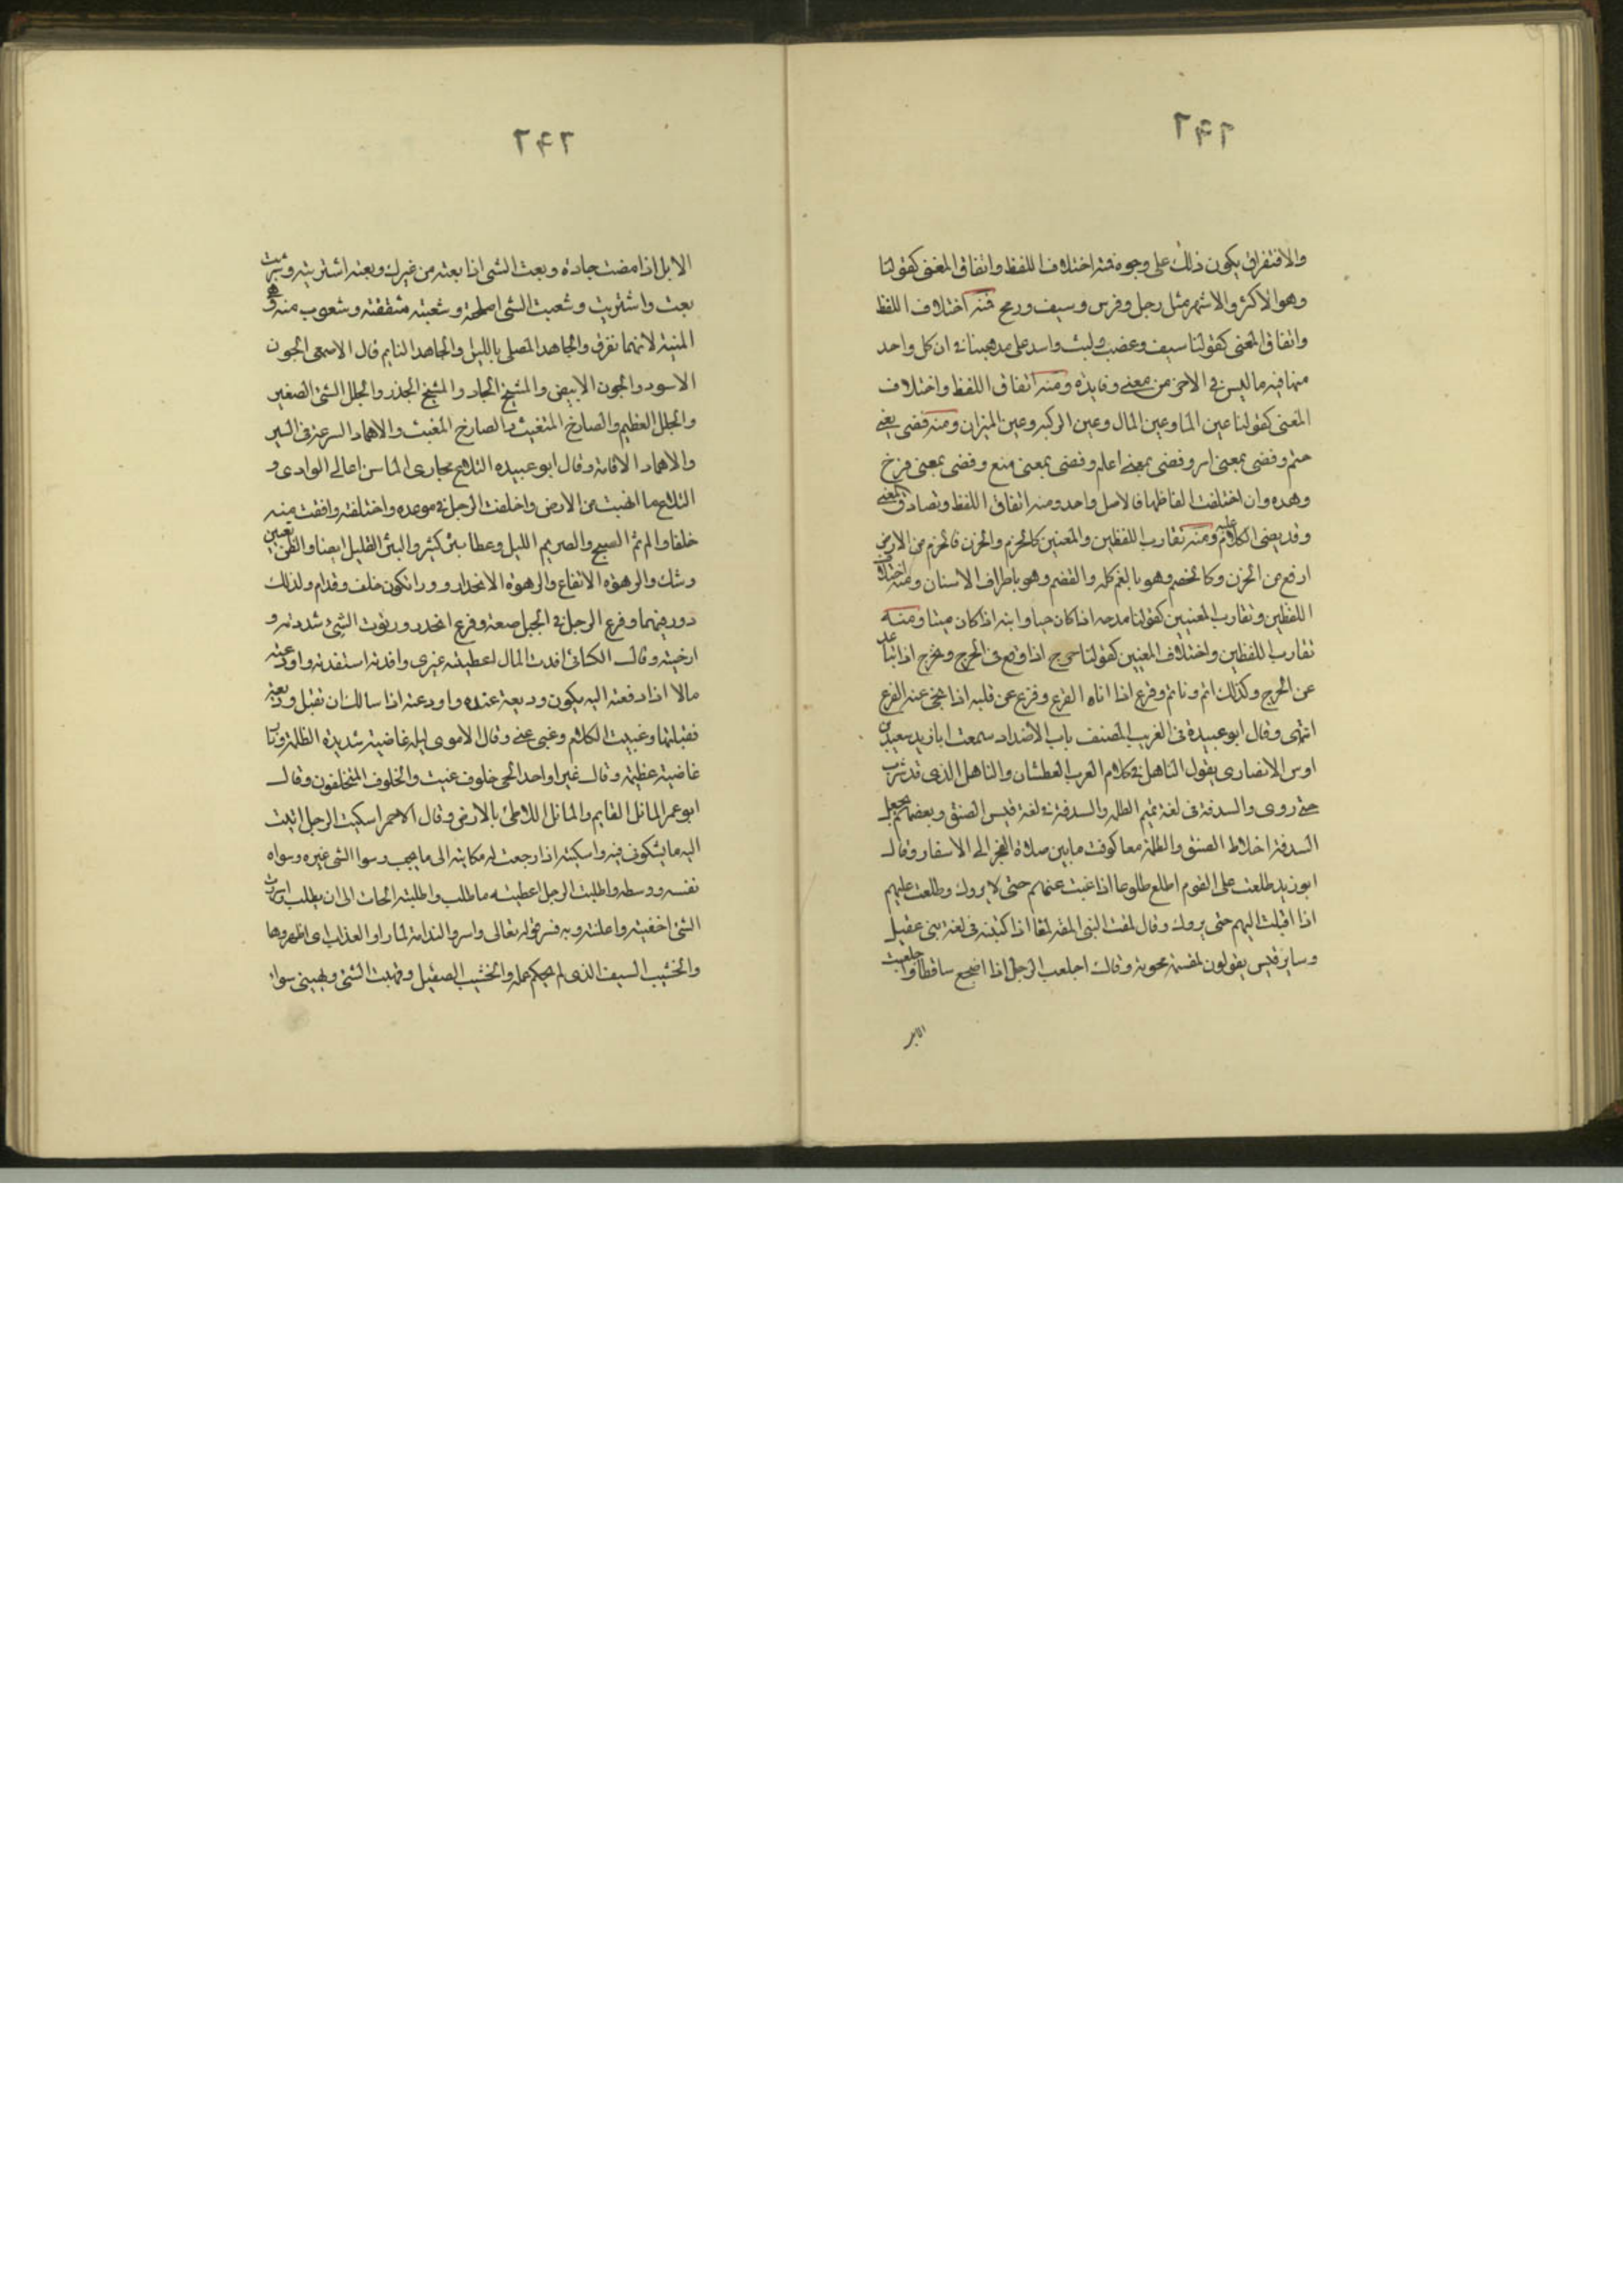 ٢٩٦
والافتراق يكون ذلك على وجوه فمنه اختلاف اللفظ واتفاق المعنى كقولنا
وهو الاكثر والاشهر مثل رجل وفرس وسيف ورمح فمنه اختلاف اللفظ
واتفاق المعنى كقولنا سيف وعضب وليث واسد على مذهبنا في ان كل واحد
منها فيه ما ليس في الاخر من معنى وفايدة ومنه اتفاق اللفظ واختلاف
المعنى كقولنا عين الما وعين المال وعين الركبه وعين الميزان ومنه قضى يعنى
حتم وقضى بمعنى امر وقضى بمعنى اعلم وقضى بمعنى صنع وقضى بمعنى فرغ
وهذه وان اختلفت الفاظها فالاصل واحد ومنه اتفاق اللفظ وتضاد المعنى
وقد مضى الكلام عليه ومنه تقارب اللفظين والمعنيين كالحزم والحزن فالحزم من الارض
ارفع من الحزن وكالخضم وهو بالفم كله والقضم وهو باطراف الاسنان ومنه اختلاف
اللفظين وتقارب المعنيين كقولنا مدحه اذا كان حيا وابنه اذا كان ميتا ومنه
تقارب اللفظين واختلاف المعنيين كقولنا حرج اذا وقع في الحرج وتحرج اذا تباعد
عن الحرج وكذلك اثم وتاثم وفزع اذا اتاه الفزع وفزع عن قلبه اذا نحى عنه الفزع
انتهى وقال ابو عبيدة في الغريب المصنف باب الاضداد سمعت ابا زيد سعيد بن
اوس الانصارى يقول الناهل في كلام العرب العطشان والناهل الذى قد شرب
حتى روى والسدفة في لغة تميم الظلمه والسدفة في لغة قيس الضوء وبعضهم يجعل
السدفة اختلاط الضوء والظلمة معا كوقت ما بين صلاة الفجر الى الاسفار وقال
ابو زيد طلعت على القوم اطلع طلوعا اذا غبت عنهم حتى لا يروك وطلعت عليهم
اذا اقبلت اليهم حتى يروك وقال لمقت الشى المقه لمقا اذا كتبته في لغة بنى عقيل
وساير قيس يقولون لمقته محوته وقال اجلعب الرجل اذا اضجع ساقطا واجلعبت
الابل
٢٩٦
الابل اذا مضت جادة وبعت الشى اذا بعته من غيرك وبعته اشتريته وشريت
بعت واشتريت وشعبت الشى اصلحته وشعبته شققته وشعوب منه وهى
المنية لانها تفرق والهاجد المصلى بالليل والهاجد النايم قال الاصمعى الجون
الاسود والجون الابيض والمشيح الجاد والمشيح الحذر والجلل الشى الصغير
والجلل العظيم والصارخ المستغيث والصارخ المغيث والاهماد السرعة في السير
والاهماد الاقامة وقال ابو عبيده التلاع مجارى الما من اعالى الوادى و
التلاع ما انهبط من الارض واخلفت الرجل في موعده واخلفته وافقت منه
خلفا والصريم الصبح والصريم الليل وعطا بثر كثير والبثر القليل ايضا والظن يقين
وشك والرهوة الارتفاع والرهوة الانحدار وورا تكون خلف وقدام ولذلك
دون فيهما وفرع الرجل في الجبل صعد وفرع انحدر ورتوت الشى شددته و
ارخيته وقال الكسائى افدت المال اعطيته غيرى وافدته استفدته واودعته
مالا اذا دفعته اليه يكون وديعة عنده واودعته اذا سالك ان تقبل وديعته
فقبلتها وغبيت الكلام وغبى عنى وقال الاموى ليله غاضية شديدة الظلمة ونار
غاضية عظيمة وقال غير واحد الحى خلوف غيب والخلوف المتخلفون وقال
ابو عمر الماثل القايم والماثل اللاطئ بالارض وقال الاحمر اشكيت الرجل اتيت
اليه ما يشكونى فيه واشكيته اذا رجعت له من شكايته الى ما يحب وسوا الشى غيره وسواه
نفسه ووسطه واطلبت الرجل اعطيته ما طلب واطلبته الجات الى ان يطلب واسررت
الشى اخفيته واعلنته وبه فسر قوله تعالى واسروا الندامة لما راوا العذاب اى اظهروها
والخشيب السيف الذى لم يحكم عمله والخشيب الصقيل وتهيبت الشى وتهيبنى سوا